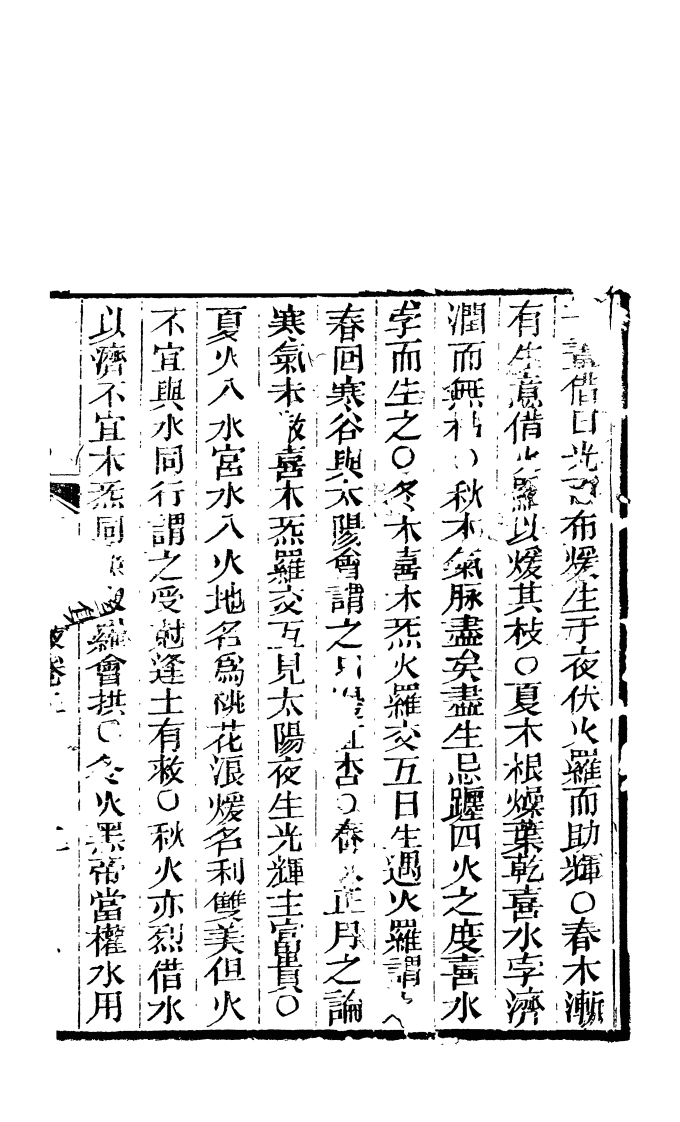 借日光布煖生于夜伏火羅而助輝○春木漸
有生意借火羅以煖其枝○夏木根燥葉乾喜水孛濟
潤而無枯○秋木氣脉盡矣盡生忌躔四火之度喜水
孛而生之○冬木喜木炁火羅交互日生遇火羅謂之
春回寒谷與太陽會謂之日邊紅杏○春火正月之論
寒氣未散喜木炁羅交互見太陽夜生光輝主富貴○
夏火入水宮水入火地名爲桃花浪煖名利雙美但火
不宜與水同行謂之受尅逢土有救○秋火亦烈借水
以濟不宜木炁同羅會拱○冬火黑帝當權水用
卷二